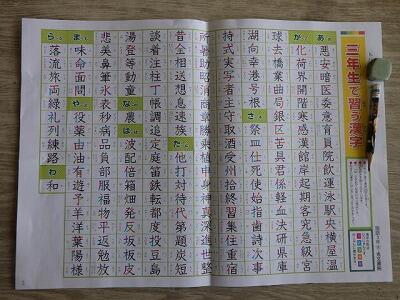 三年生で習う漢字
あ 悪安暗医委意育員院飲運泳駅央横屋温
か 化荷界開階寒感漢館岸起期客究急級宮
球去橋業曲局銀区苦具君係軽血決研県庫
湖向幸港号根 さ 祭皿仕死使始指歯詩次事
持式実写者主守取酒受州拾終習集住重宿
所暑助昭消商章勝乗植申身神真深進世整
昔全相送想息速族 た 他打対待代第題炭短
談着注柱丁帳調追定庭笛鉄転都度投豆島
湯登等動童 な 農 は 波配倍箱畑発反坂板皮
悲美鼻筆氷表秒病品負部服福物平返勉放
ま 味命面問 や 役薬由油有遊予羊洋葉陽様
ら 落流旅両緑礼列練路 わ 和